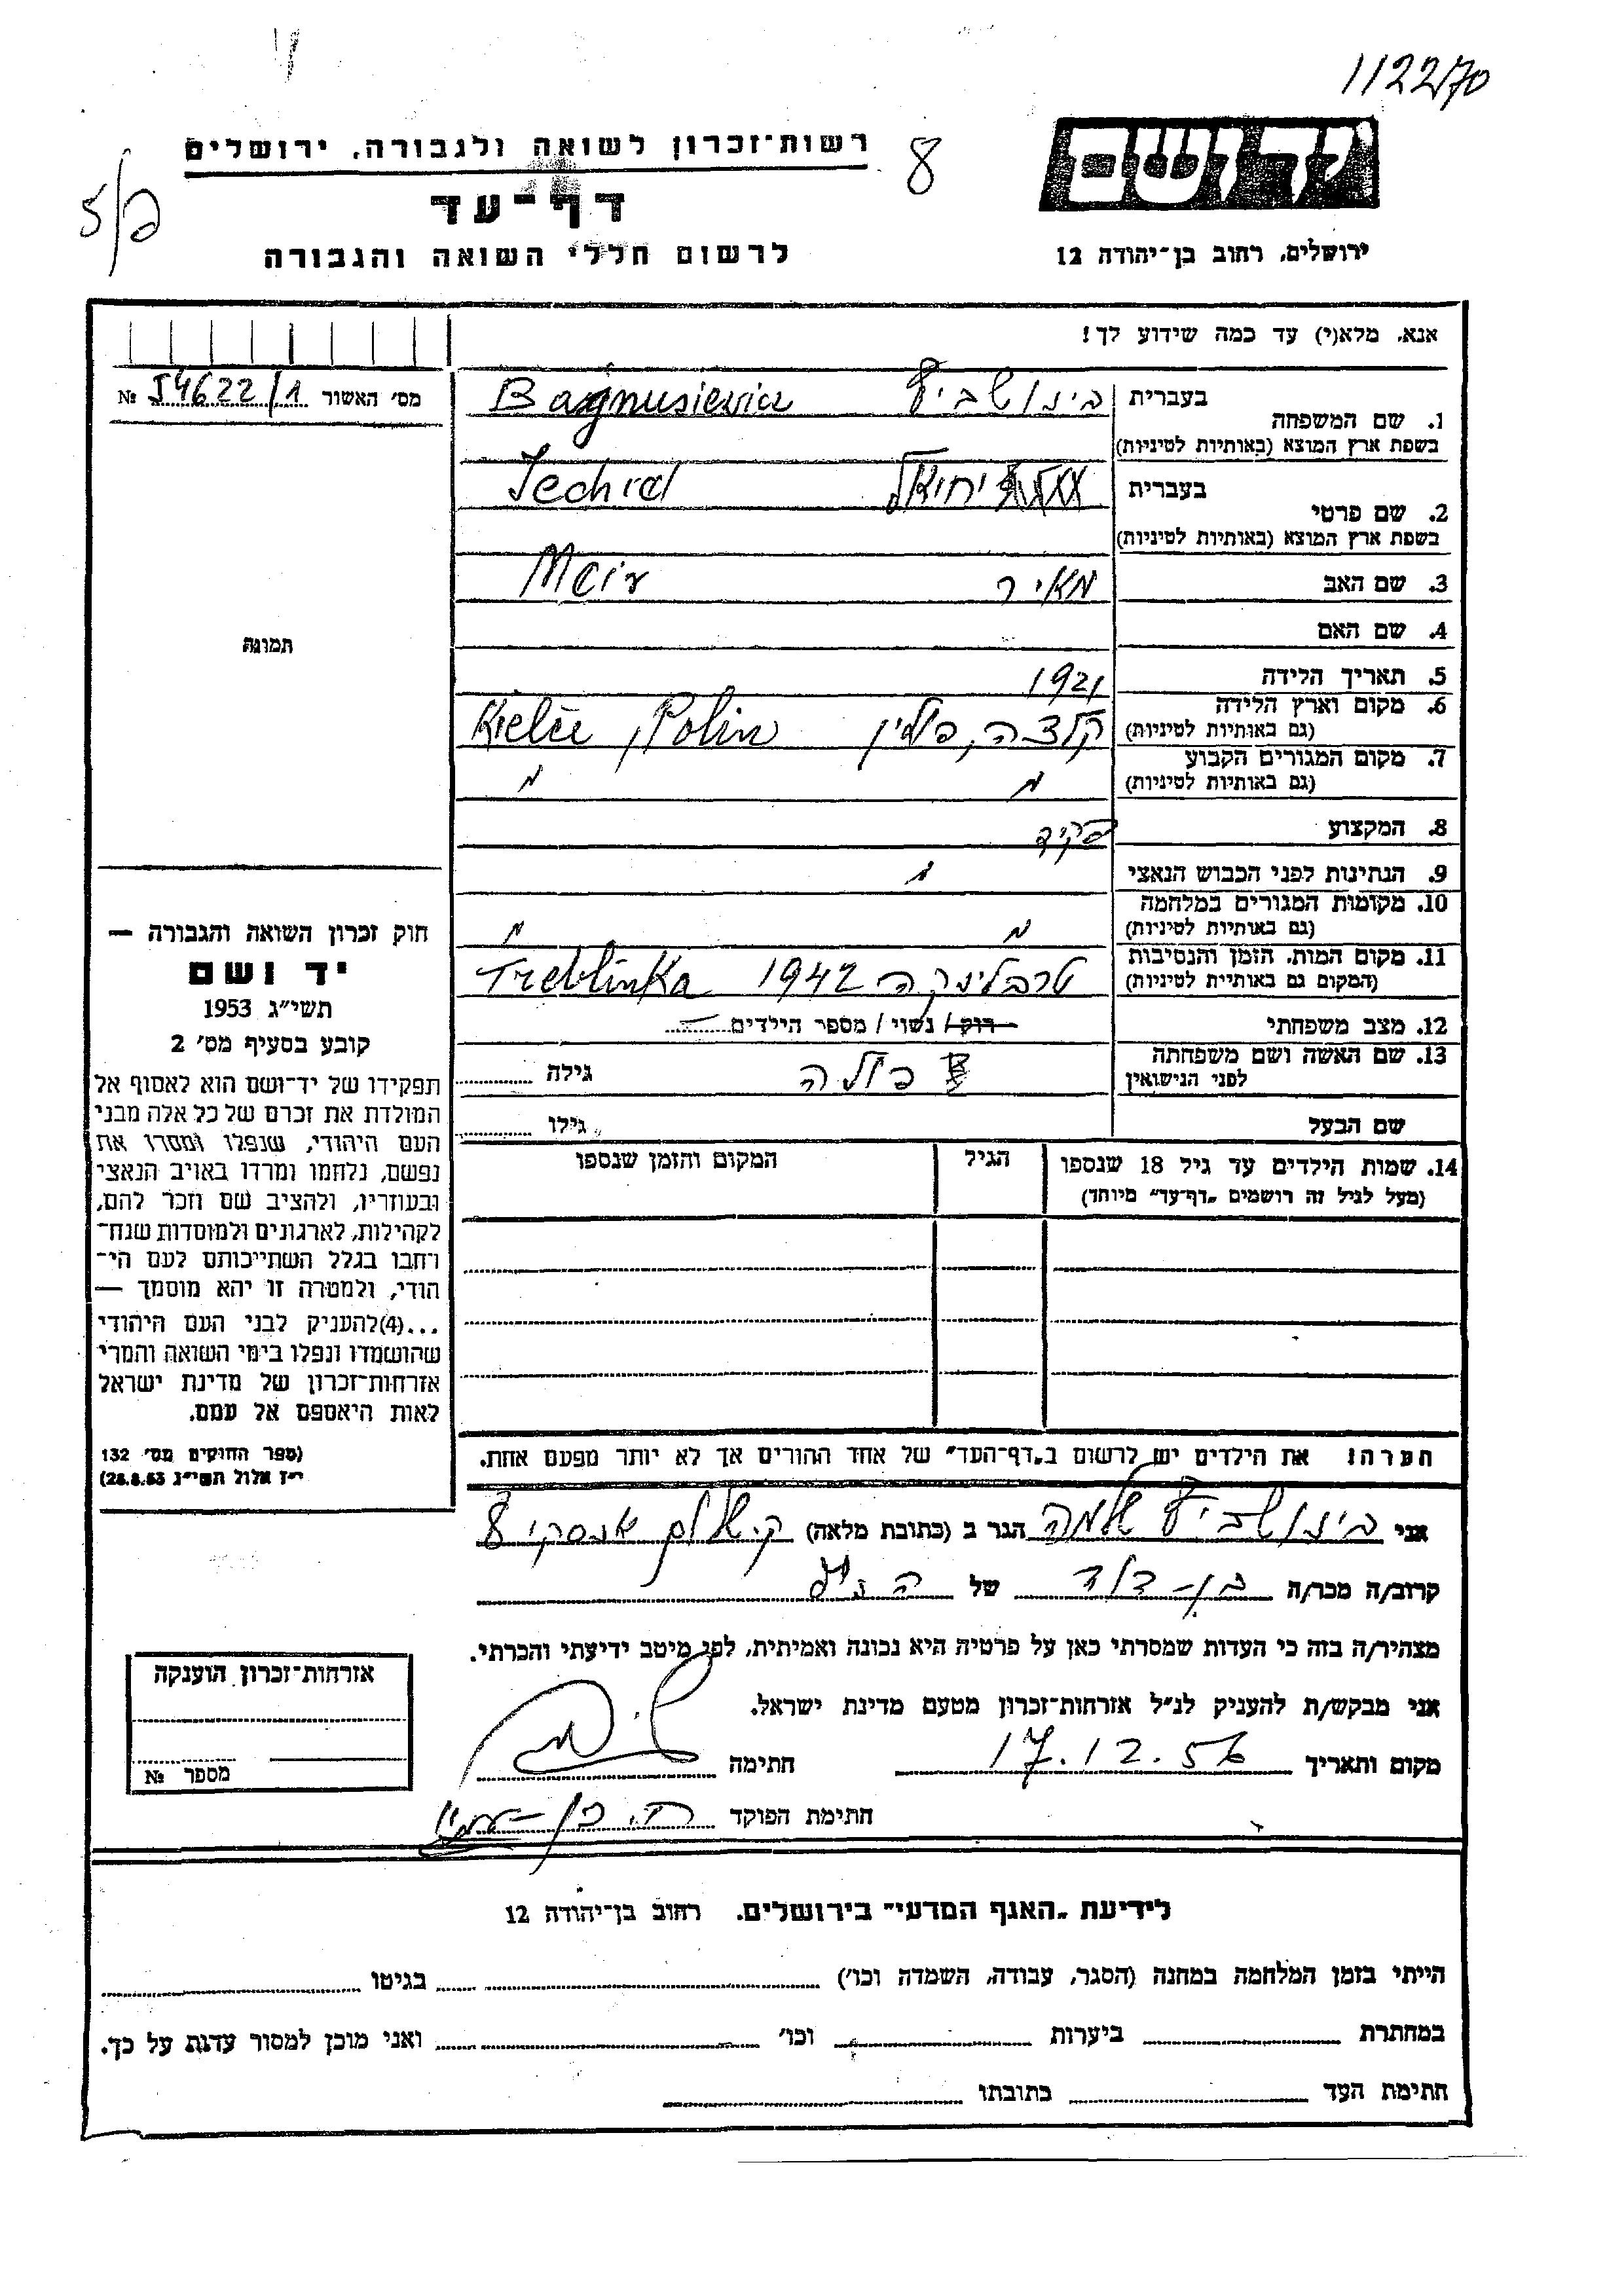 1122/70
יד ושם
רשות־זכרון לשואה ולגבורה, ירושלים
8
דף־עד
לרשום חללי השואה והגבורה
ירושלים, רחוב בן־יהודה 12
אנא, מלא(י) עד כמה שידוע לך!
מס׳ האשור 54622/1 №
תמונה
חוק זכרון השואה והגבורה —
יד ושם
תשי״ג 1953
קובע בסעיף מס׳ 2
תפקידו של יד־ושם הוא לאסוף אל
המולדת את זכרם של כל אלה מבני
העם היהודי, שנפלו ומסרו את
נפשם, נלחמו ומרדו באויב הנאצי
ובעוזריו, ולהציב שם וזכר להם,
לקהילות, לארגונים ולמוסדות שנח־
רחבו בגלל השתייכותם לעם הי־
הודי, ולמטרה זו יהא מוסמך —
...(4)להעניק לבני העם היהודי
שהושמדו ונפלו בימי השואה והמרי
אזרחות־זכרון של מדינת ישראל
לאות היאספם אל עמם.
(ספר החוקים מס׳ 132
י״ז אלול תשי״ג 28.8.53)
בעברית
1. שם המשפחה
בשפת ארץ המוצא (באותיות לטיניות)
בינושביץ Bagnusiewicz
בעברית
2. שם פרטי
בשפת ארץ המוצא (באותיות לטיניות)
יחיאל Jechiel
3. שם האב מאיר Meir
4. שם האם
5. תאריך הלידה 1921
6. מקום וארץ הלידה
(גם באותיות לטיניות)
קלצה, פולין Kielce, Polin
7. מקום המגורים הקבוע
(גם באותיות לטיניות)
״ ״
8. המקצוע פקיד
9. הנתינות לפני הכבוש הנאצי ״
10. מקומות המגורים במלחמה
(גם באותיות לטיניות)
״ ״
11. מקום המות, הזמן והנסיבות
(המקום גם באותיית לטיניות)
טרבלינקה 1942 Treblinka
12. מצב משפחתי רוק / נשוי / מספר הילדים —
13. שם האשה ושם משפחתה
לפני הנישואין
פולה גילה
שם הבעל גילו
14. שמות הילדים עד גיל 18 שנספו
(מעל לגיל זה רושמים „דף־עד״ מיוחד)
הגיל
המקום והזמן שנספו
הערה! את הילדים יש לרשום ב„דף־העד״ של אחד ההורים אך לא יותר מפעם אחת.
אני בינושביץ שלמה הגר ב (כתובת מלאה) ק. שלום אנסקי 8
קרוב/ה מכר/ה בן־דוד של הנ״ל
מצהיר/ה בזה כי העדות שמסרתי כאן על פרטיה היא נכונה ואמיתית, לפי מיטב ידיעתי והכרתי.
אני מבקש/ת להעניק לנ״ל אזרחות־זכרון מטעם מדינת ישראל.
מקום ותאריך 17.12.56 חתימה
חתימת הפוקד
אזרחות־זכרון הוענקה
מספר №
לידיעת „האגף המדעי״ בירושלים, רחוב בן־יהודה 12
הייתי בזמן המלחמה במחנה (הסגר, עבודה, השמדה וכו׳) בגיטו
במחתרת ביערות וכו׳ ואני מוכן למסור עדות על כך.
חתימת העד כתובתו